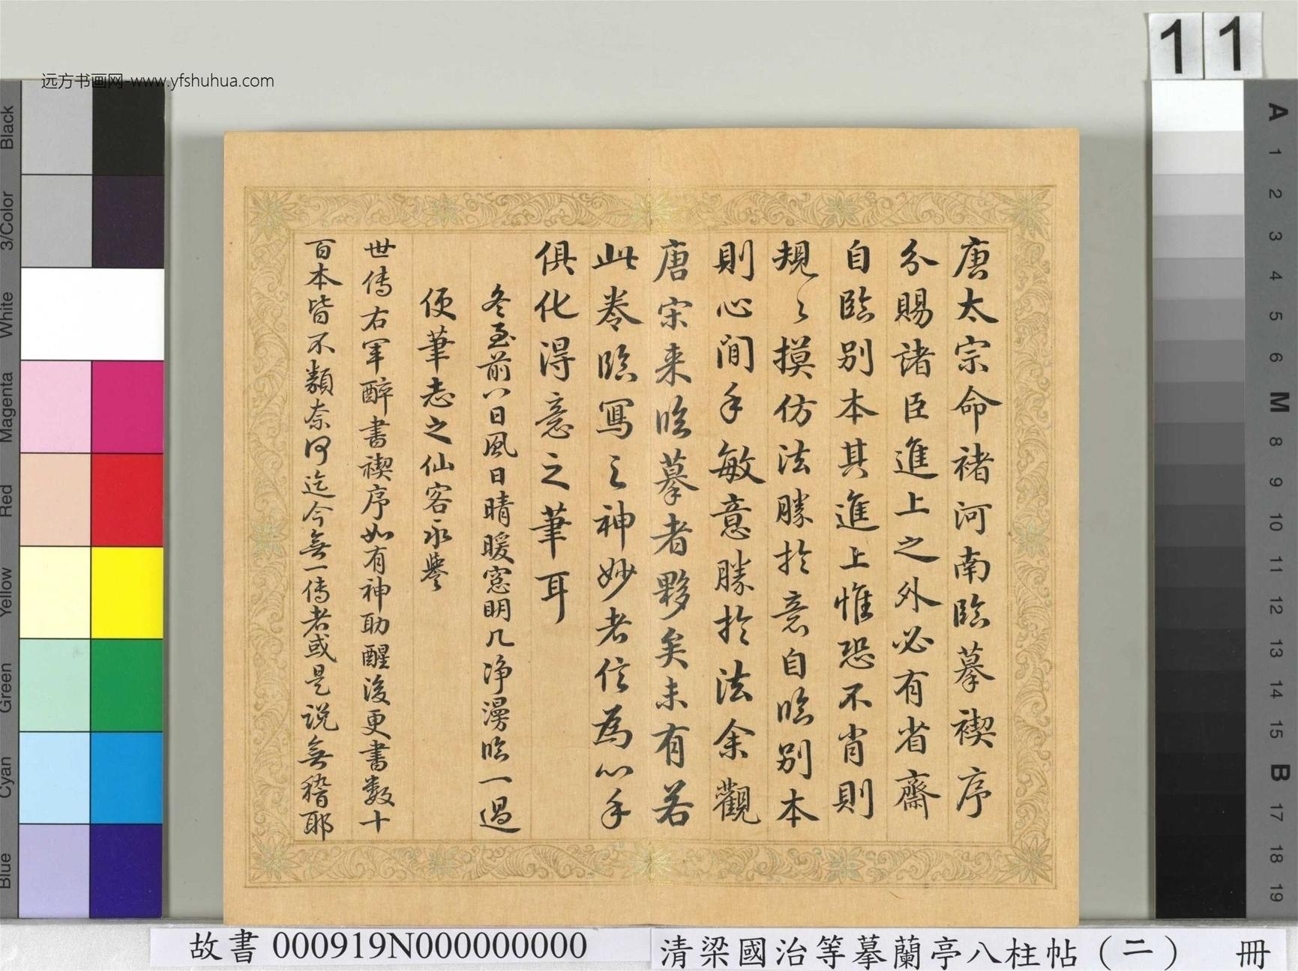 远方书画网-www.yfshuhua.com
11
唐太宗命褚河南臨摹禊序
分賜諸臣進上之外必有省齋
自臨别本其進上惟恐不肖則
規〻摸仿法勝扵意自臨别本
則心间手敏意勝扵法余觀
唐宋来臨摹者夥矣未有若
此卷臨寫之神妙者信為心手
俱化淂意之筆耳
冬至前八日風日晴暖窓明几净漫臨一過
便筆志之仙客永譽
世傳右軍醉書禊序如有神助醒後更書數十
百本皆不類奈何迄今無一傳者或是说無稽耶
Black
3/Color
White
Magenta
Red
Yellow
Green
Cyan
Blue
A
1
2
3
4
5
6
M
8
9
10
11
12
13
14
15
B
17
18
19
故書 000919N000000000
清梁國治等摹蘭亭八柱帖（二） 冊